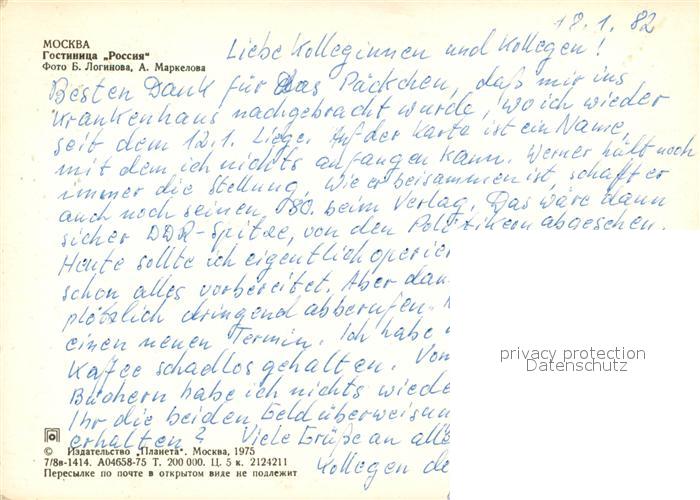 18.1.82
МОСКВА
Гостиница „Россия“
Фото Б. Логинова, А. Маркелова
Liebe Kolleginnen und Kollegen!
Besten Dank für das Päckchen, daß mir ins
Krankenhaus nachgebracht wurde, wo ich wieder
seit dem 12.1. liege. Auf der Karte ist ein Name,
mit dem ich nichts anfangen kann. Werner hält noch
immer die Stellung, wie er beisammen ist, schafft er
auch noch seinen 80. beim Verlag. Das wäre dann
sicher DDR-Spitze, von den Politikern abgesehen.
Heute sollte ich eigentlich operier
schon alles vorbereitet. Aber dan
plötzlich dringend abberufen.
einen neuen Termin. Ich habe
Kaffee schadlos gehalten. Von
Büchern habe ich nichts wiede
Ihr die beiden Geldüberweisun
erhalten? Viele Grüße an alle
Kollegen de
privacy protection
Datenschutz
© Издательство „Планета“. Москва, 1975
7/8в-1414. А04658-75 Т. 200 000. Ц. 5 к. 2124211
Пересылке по почте в открытом виде не подлежит